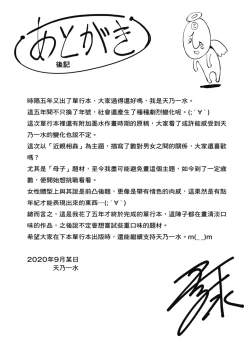 あとがき
後記
時隔五年又出了單行本,大家過得還好嗎,我是天乃一水。
這五年間不只換了年號,社會還產生了種種劇烈變化呢。(;´∀`)
這次單行本裡還有附加墨水作畫時期的原稿,大家看了或許能感受到天
乃一水的變化也說不定。
這次以「近親相姦」為主題,描寫了數對男女之間的關係,大家還喜歡
嗎?
尤其是「母子」題材,至今我盡可能避免畫這個主題,如今到了一定歲
數,便開始想挑戰看看。
女性體型上與其說是前凸後翹,更像是帶有情色的肉感,這果然是有點
年紀才能表現出來的東西…(;´∀`)
總而言之,這是我花了五年才終於完成的單行本,這陣子都在畫清淡口
味的作品,之後說不定會想嘗試些重口味的題材。
希望大家在下本單行本出版時,還能繼續支持天乃一水。m(_ _)m
2020年9月某日
天乃一水